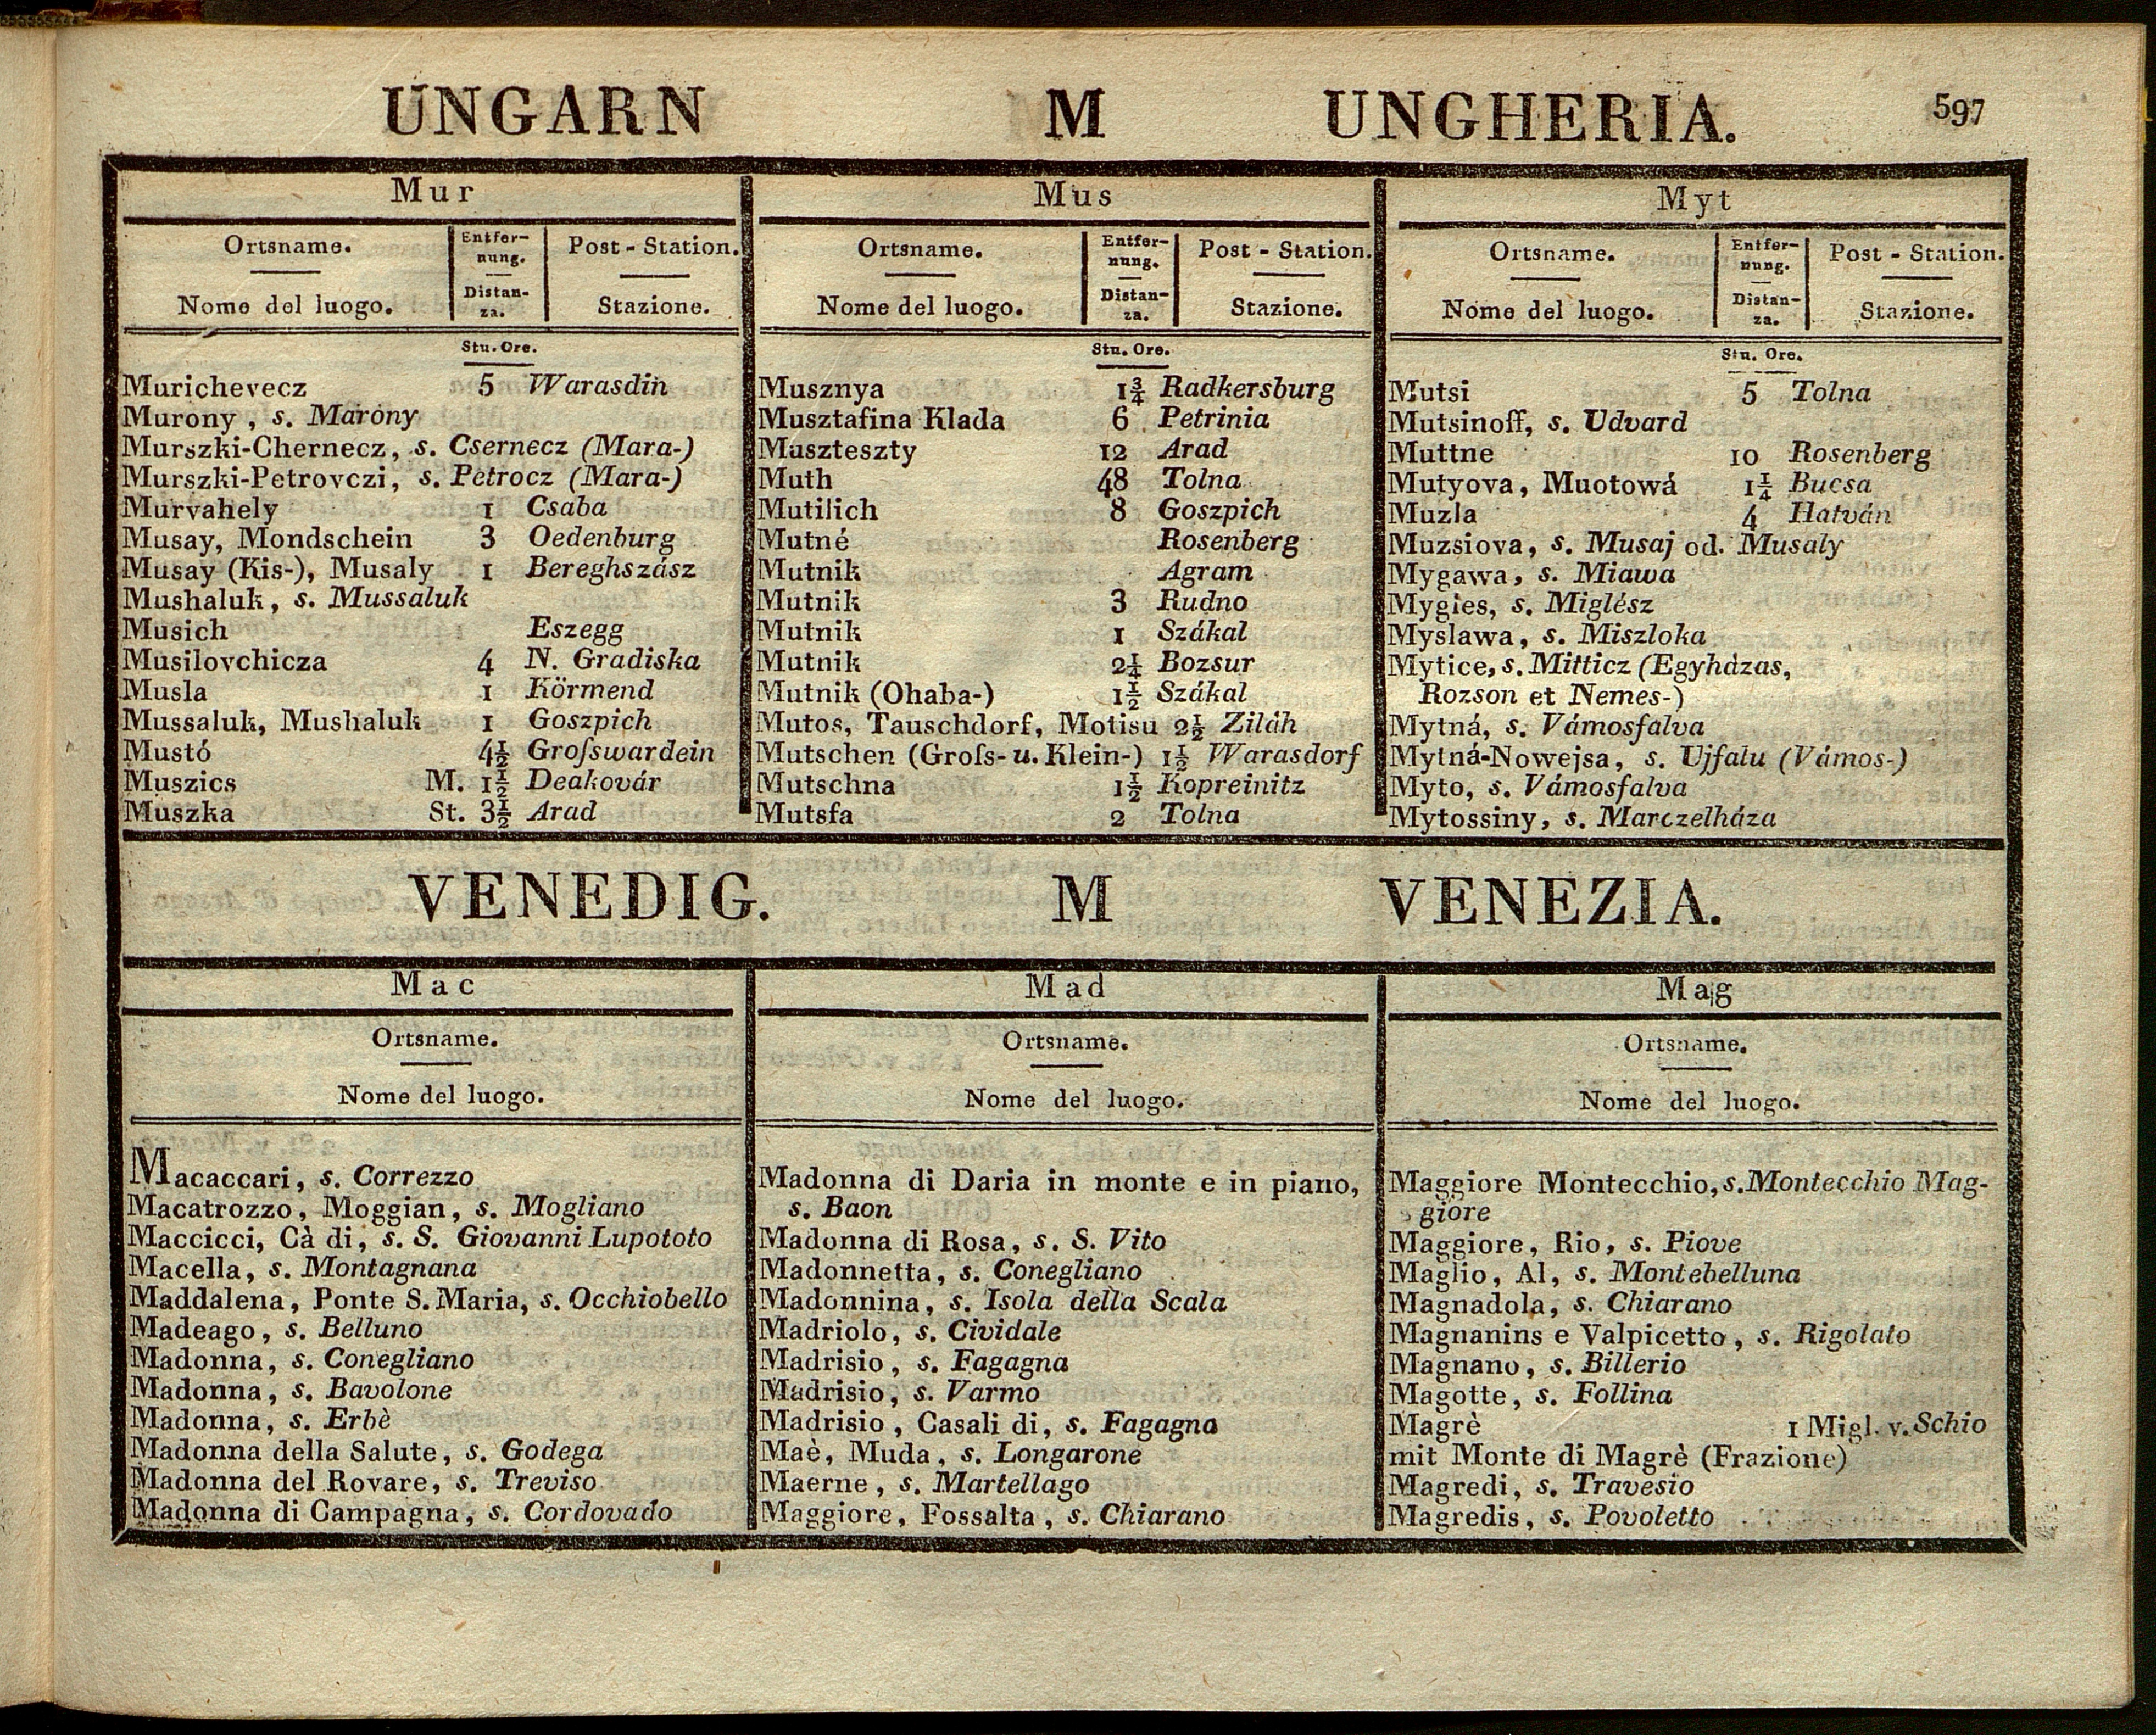 UNGARN M UNGHERIA. 597
Mur
Ortsname. Entfer- Post-Station.
nung.
Nome del luogo. Distan- Stazione.
za.
Stu. Ore.
Murichevecz 5 Warasdin
Murony, s. Marony
Murszki-Chernecz, s. Csernecz (Mara-)
Murszki-Petrovczi, s. Petrocz (Mara-)
Murvahely 1 Csaba
Musay, Mondschein 3 Oedenburg
Musay (Kis-), Musaly 1 Bereghszász
Mushaluk, s. Mussaluk
Musich Eszegg
Musilovchicza 4 N. Gradiska
Musla 1 Körmend
Mussaluk, Mushaluk 1 Goszpich
Mustó 4½ Groſswardein
Muszics M. 1½ Deakovár
Muszka St. 3½ Arad
Mus
Ortsname. Entfer- Post-Station.
nung.
Nome del luogo. Distan- Stazione.
za.
Stu. Ore.
Musznya 1¾ Radkersburg
Musztafina Klada 6 Petrinia
Muszteszty 12 Arad
Muth 48 Tolna
Mutilich 8 Goszpich
Mutné Rosenberg
Mutnik Agram
Mutnik 3 Rudno
Mutnik 1 Szákal
Mutnik 2¼ Bozsur
Mutnik (Ohaba-) 1½ Szákal
Mutos, Tauschdorf, Motisu 2½ Ziláh
Mutschen (Groſs- u. Klein-) 1½ Warasdorf
Mutschna 1½ Kopreinitz
Mutsfa 2 Tolna
Myt
Ortsname. Entfer- Post-Station.
nung.
Nome del luogo. Distan- Stazione.
za.
Stu. Ore.
Mutsi 5 Tolna
Mutsinoff, s. Udvard
Muttne 10 Rosenberg
Mutyova, Muotowá 1¼ Bucsa
Muzla 4 Hatván
Muzsiova, s. Musaj od. Musaly
Mygawa, s. Miawa
Mygies, s. Miglész
Myslawa, s. Miszloka
Mytice, s. Mitticz (Egyházas,
Rozson et Nemes-)
Mytná, s. Vámosfalva
Mytná-Nowejsa, s. Ujfalu (Vámos-)
Myto, s. Vámosfalva
Mytossiny, s. Marczelháza
VENEDIG. M VENEZIA.
Mac
Ortsname.
Nome del luogo.
Macaccari, s. Correzzo
Macatrozzo, Moggian, s. Mogliano
Maccicci, Cà di, s. S. Giovanni Lupototo
Macella, s. Montagnana
Maddalena, Ponte S. Maria, s. Occhiobello
Madeago, s. Belluno
Madonna, s. Conegliano
Madonna, s. Bavolone
Madonna, s. Erbè
Madonna della Salute, s. Godega
Madonna del Rovare, s. Treviso
Madonna di Campagna, s. Cordovado
Mad
Ortsname.
Nome del luogo.
Madonna di Daria in monte e in piano,
s. Baon
Madonna di Rosa, s. S. Vito
Madonnetta, s. Conegliano
Madonnina, s. Isola della Scala
Madriolo, s. Cividale
Madrisio, s. Fagagna
Madrisio, s. Varmo
Madrisio, Casali di, s. Fagagna
Maè, Muda, s. Longarone
Maerne, s. Martellago
Maggiore, Fossalta, s. Chiarano
Mag
Ortsname.
Nome del luogo.
Maggiore Montecchio, s. Montecchio Mag-
giore
Maggiore, Rio, s. Piove
Maglio, Al, s. Montebelluna
Magnadola, s. Chiarano
Magnanins e Valpicetto, s. Rigolato
Magnano, s. Billerio
Magotte, s. Follina
Magrè 1 Migl. v. Schio
mit Monte di Magrè (Frazione)
Magredi, s. Travesio
Magredis, s. Povoletto